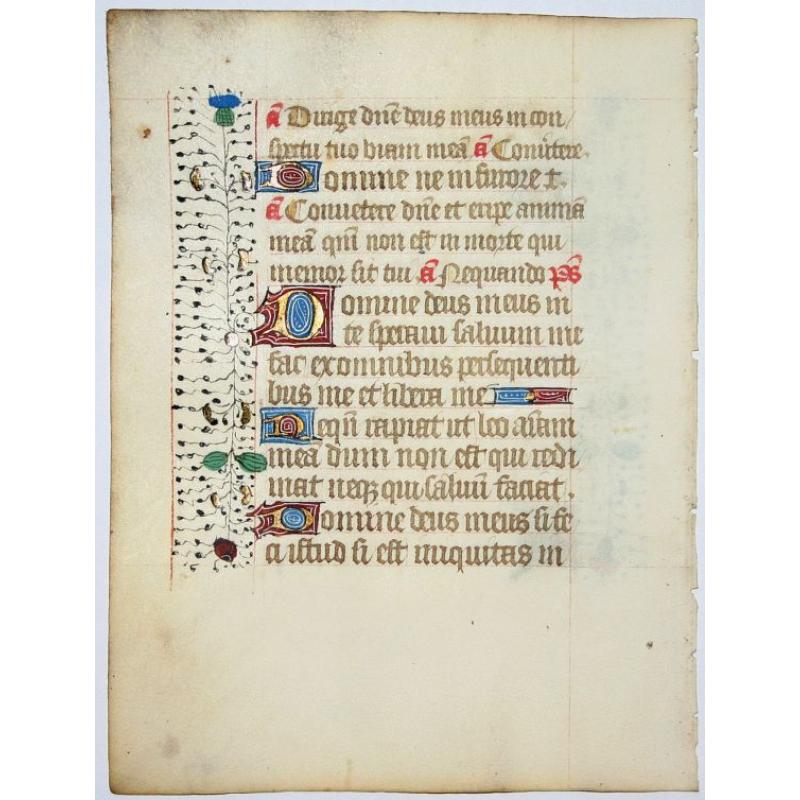 a Dirige dn̄e deus meus in con/
spectu tuo viam meā a Conu̾tere.
Domine ne in furore t.
a Conuetere dn̄e et eripe animā
meā qm̄ non est in morte qui
memor sit tui a Nequando ps̄
Domine deus meus in
te speraui saluum me
fac ex omnibus persequenti
bus me et libera me
Nequn̄ rapiat ut leo aīam
mea dum non est qui redi
mat neqʒ qui saluū faciat.
Domine deus meus si fe
ci istud si est iniquitas in